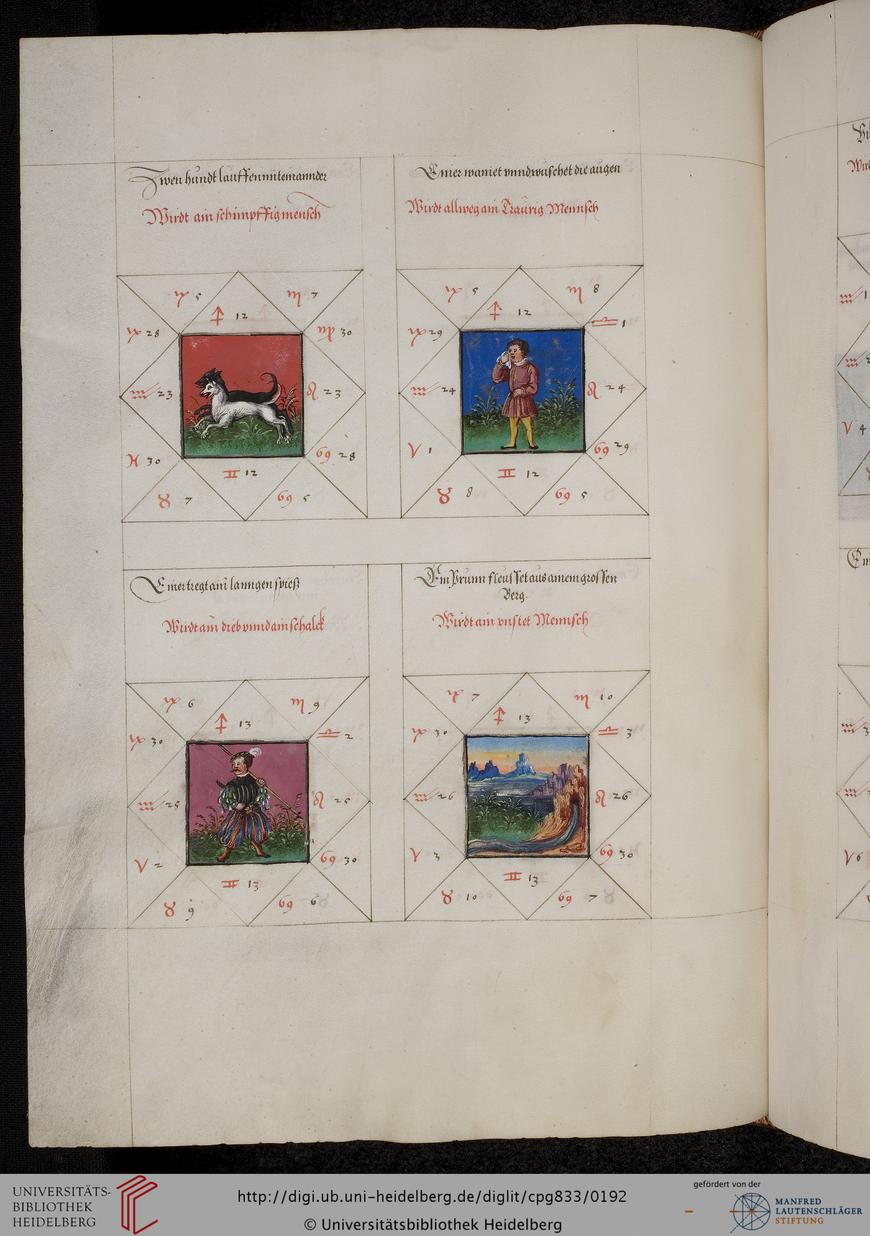 Zwen hundt lauffenn mitemannder
Wirdt ain schimpffig mensch
♑ 5
♏ 7
♐ 12
♑ 28
♍ 30
♒ 23
♌ 23
♓ 30
♋ 28
♊ 12
♉ 7
♋ 5
Einer wainet vnnd wuschet die augen
Wirdt allweg ain Traurig Mennsch
♑ 5
♏ 8
♐ 12
♑ 29
♎ 1
♒ 24
♌ 24
♈ 1
♋ 29
♊ 12
♉ 8
♋ 5
Einer tregt ain lanngen spiess
Wirdt ain dieb vnnd ain schalck
♑ 6
♏ 9
♐ 13
♑ 30
♎ 2
♒ 25
♌ 25
♈ 2
♋ 30
♊ 13
♉ 9
♋ 6
Ein Prunn fleusset aus ainem grossen
Berg
Wirdt ain vnstet Mennsch
♑ 7
♏ 10
♐ 13
♑ 30
♎ 3
♒ 26
♌ 26
♈ 3
♋ 30
♊ 13
♉ 10
♋ 7
UNIVERSITÄTS-
BIBLIOTHEK
HEIDELBERG
http://digi.ub.uni-heidelberg.de/diglit/cpg833/0192
© Universitätsbibliothek Heidelberg
gefördert von der
MANFRED
LAUTENSCHLÄGER
STIFTUNG